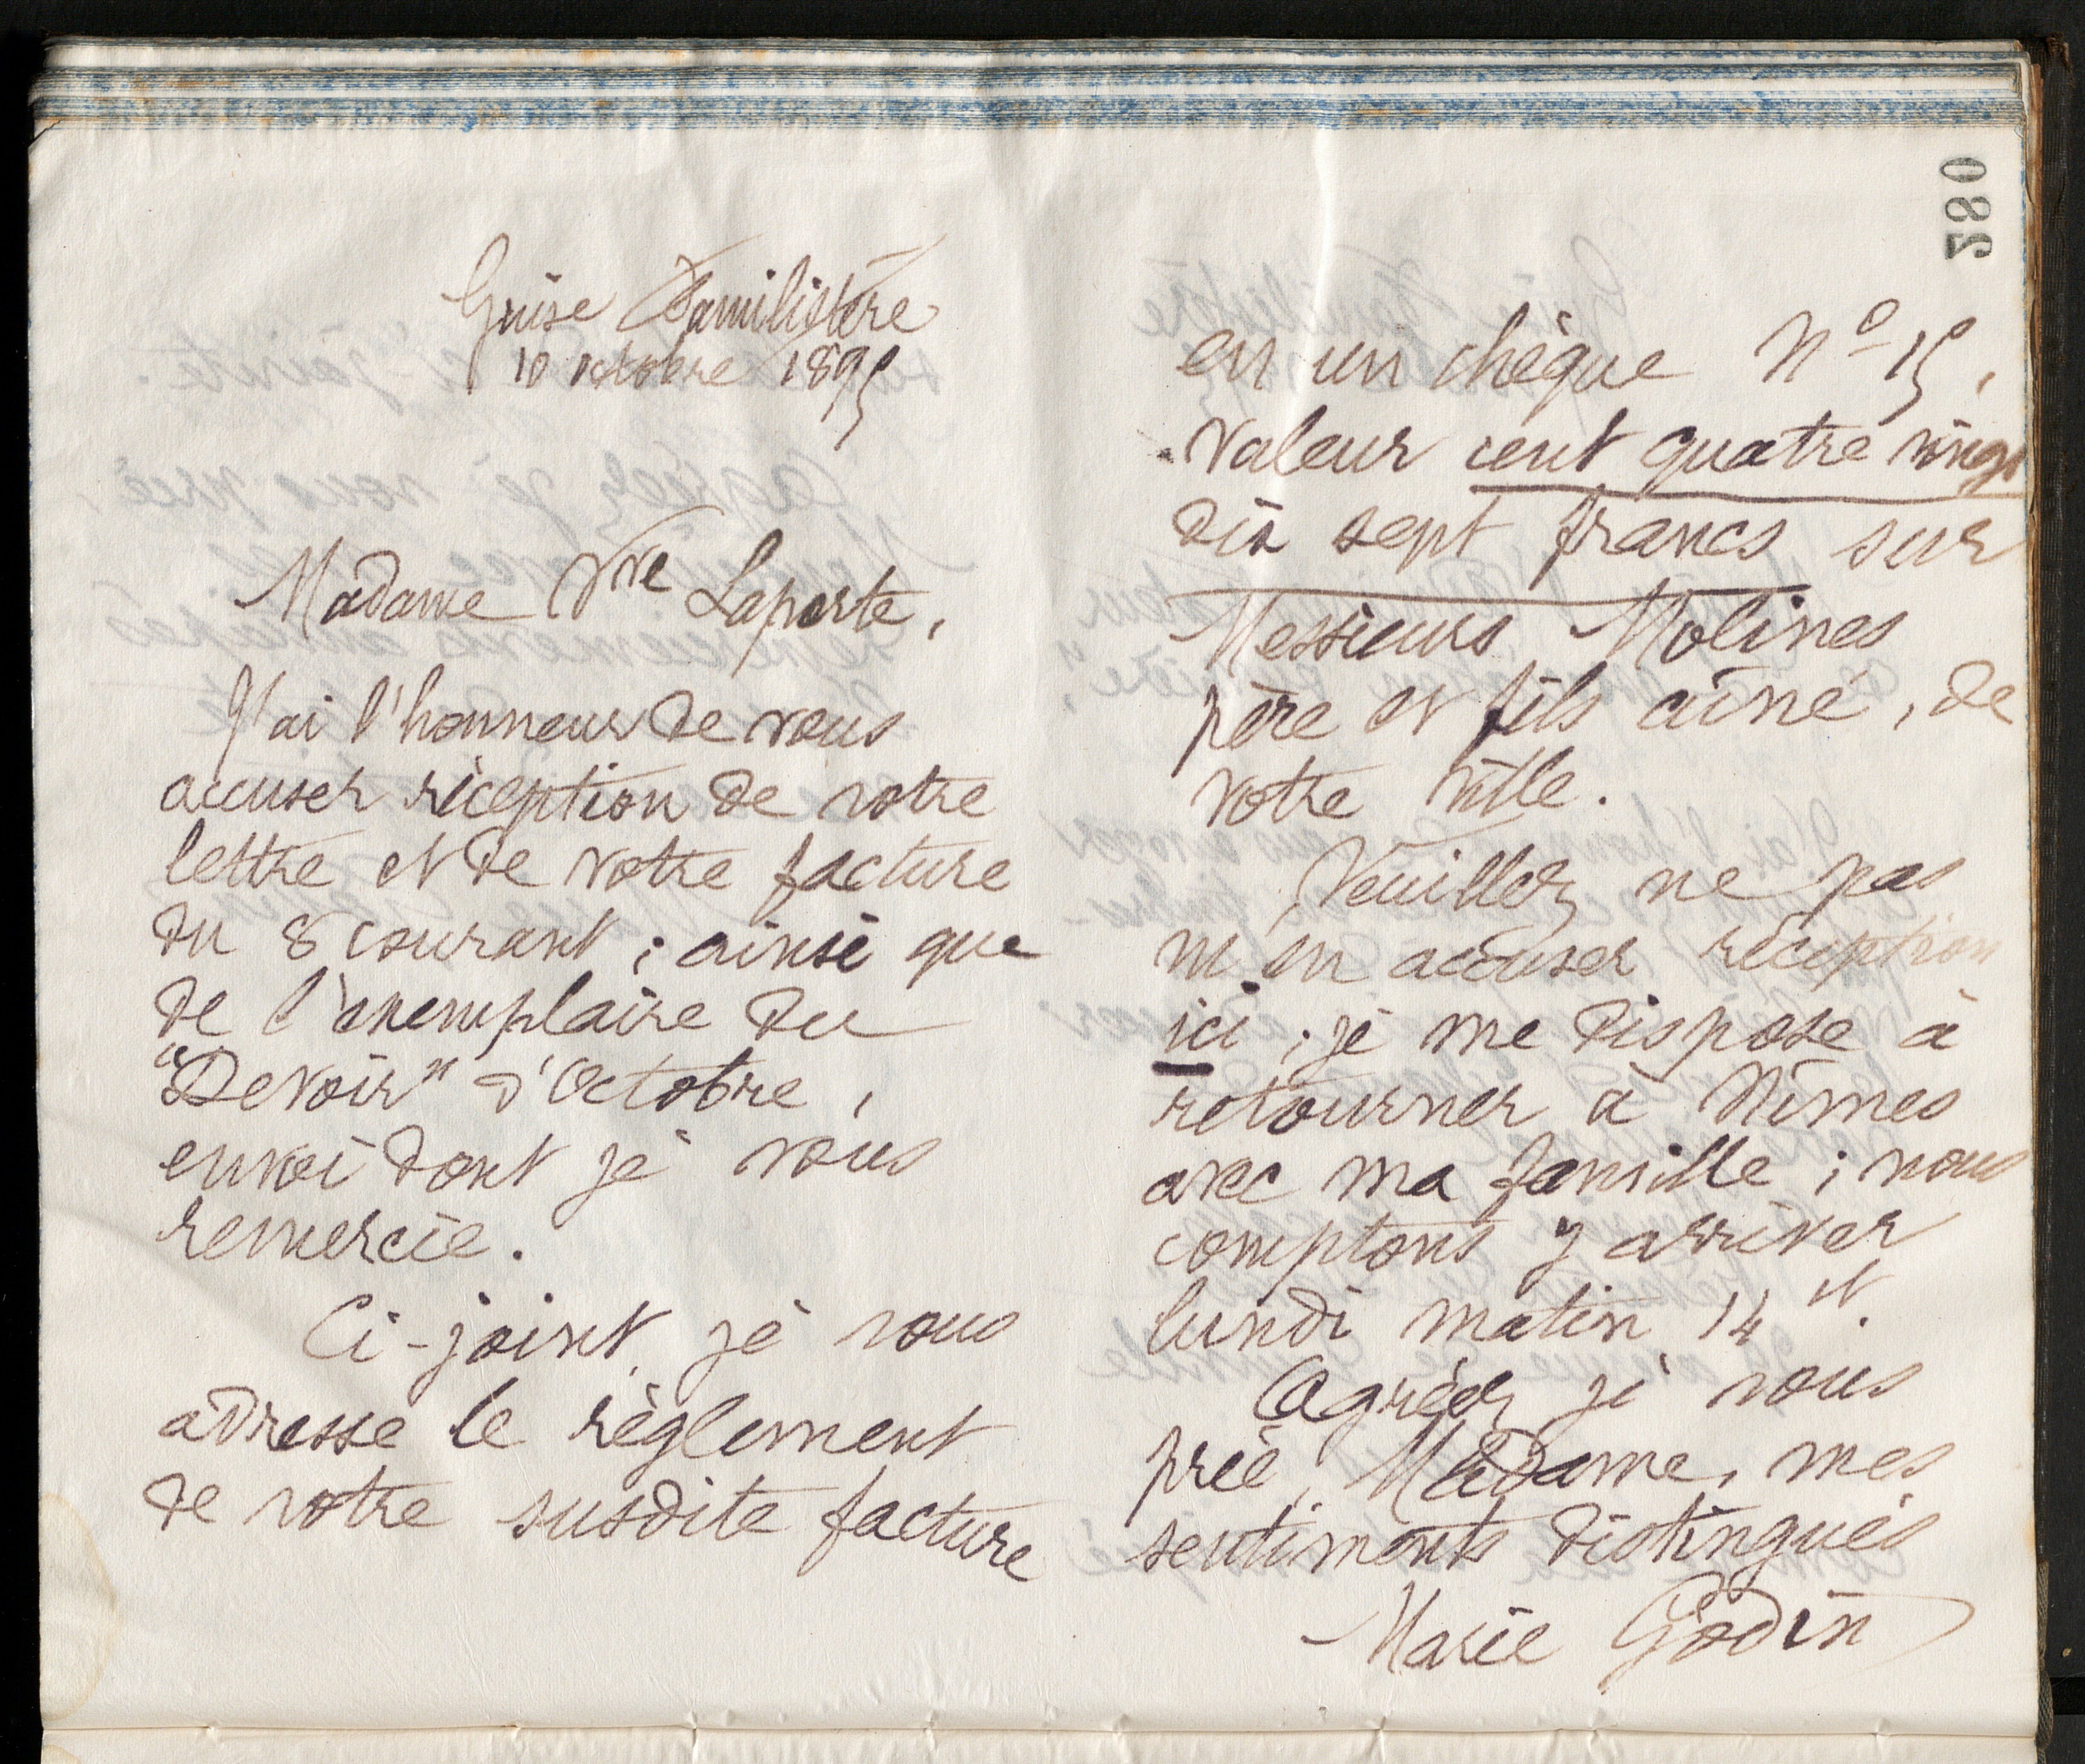 280
Guise Familistère
10 octobre 1895
Madame Vve Laporte,
J'ai l'honneur de vous
accuser réception de votre
lettre et de votre facture
du 8 courant ; ainsi que
de l'exemplaire du
"Devoir" d'Octobre,
envoi dont je vous
remercie.
Ci-joint je vous
adresse le règlement
de votre susdite facture
en un chèque No 15,
valeur cent quatre vingt
dix sept francs sur
Messieurs Molines
père et fils aîné, de
votre ville.
Veuillez ne pas
m'en accuser réception
ici ; je me dispose à
retourner à Nîmes
avec ma famille ; nous
comptons y arriver
lundi matin 14 ct.
Agréez je vous
prie, Madame, mes
sentiments distingués
Marie Godin